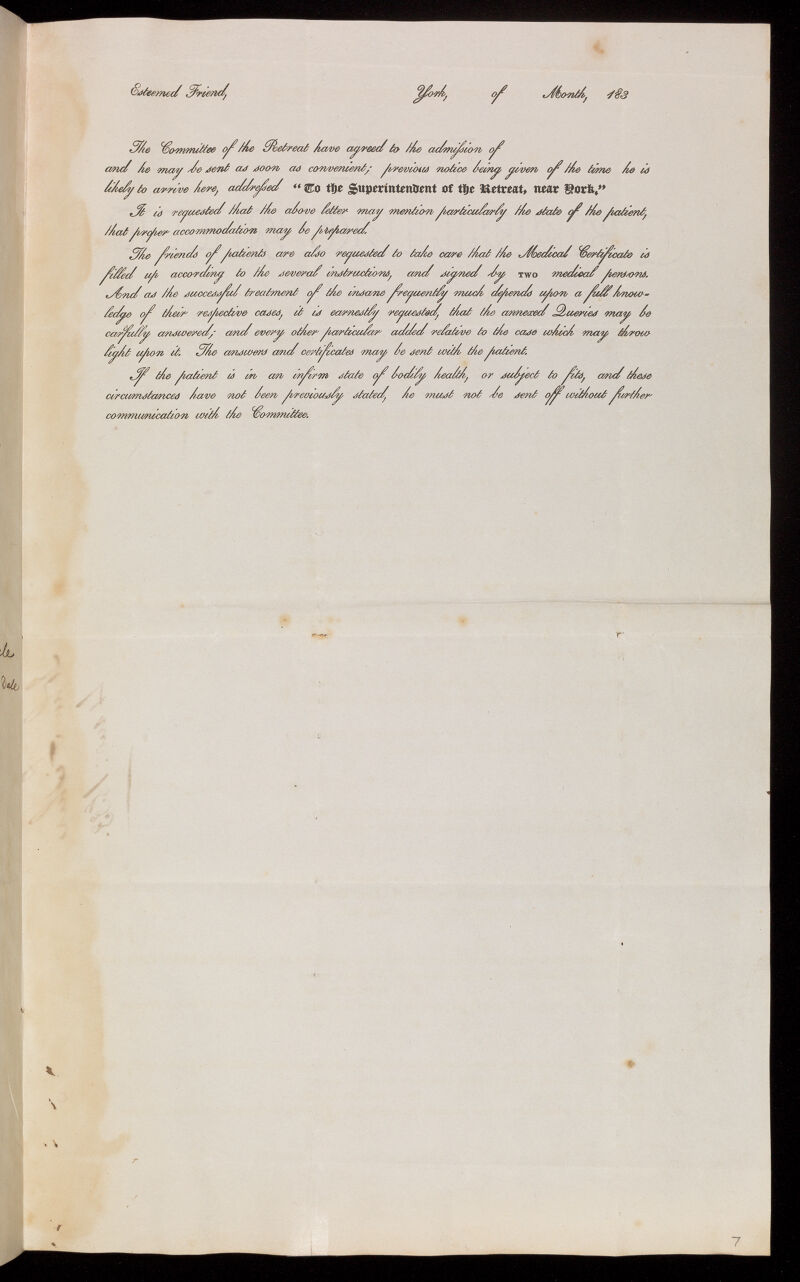 Esteemed Friend, York, of Month, 183
The Committee of the Retreat have agreed to the admission of
and he may be sent as soon as convenient; previous notice being given of the time he is
likely to arrive here, addressed "To the Superintendent of the Retreat, near York."
It is requested that the above letter may mention particularly the state of the patient,
that proper accommodation may be prepared.
The friends of patients are also requested to take care that the Medical Certificate is
filled up according to the several instructions, and signed by TWO medical persons.
And as the successful treatment of the insane frequently much depends upon a full know-
ledge of their respective cases, it is earnestly requested, that the annexed Queries may be
carfully answered; and every other particular added relative to the case which may throw
light upon it. The answers and certificates may be sent with the patient.
If the patient is in an infirm state of bodily health, or subject to fits, and these
circumstances have not been previously stated, he must not be sent off without further
communication with the Committee.
Dale
7